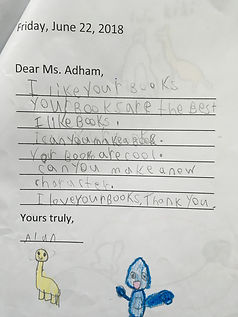 Friday, June 22, 2018
Dear Ms. Adham,
I like your Books
your Books are the Best
I like Books.
I can you make a
Your Book are cool.
can you make a new
character.
I love your Books, Thank you
Yours truly,